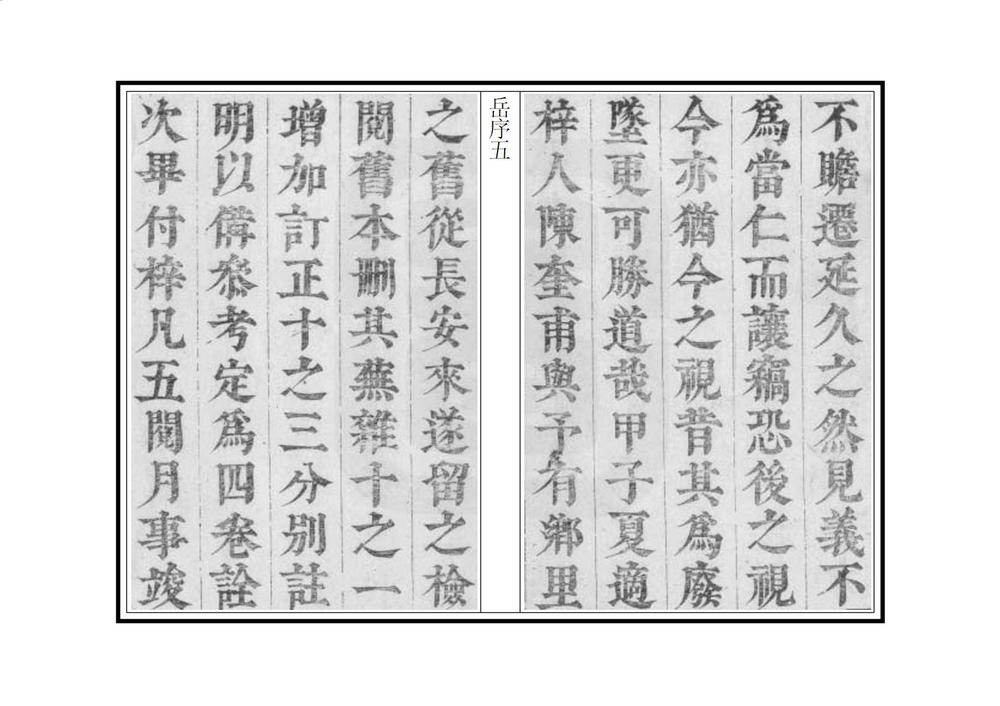 不贍遷延久之然見義不
爲當仁而讓竊恐後之視
今亦猶今之視昔其爲廢
墜更可勝道哉甲子夏適
梓人陳奎甫與予有鄉里
岳序五
之舊從長安來遂留之檢
閱舊本刪其蕪雜十之一
增加訂正十之三分別註
明以備叅考定爲四卷詮
次畢付梓凡五閱月事竣